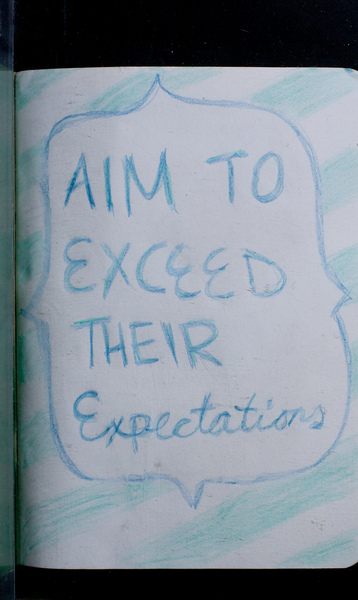 AIM TO
EXCEED
THEIR
Expectations